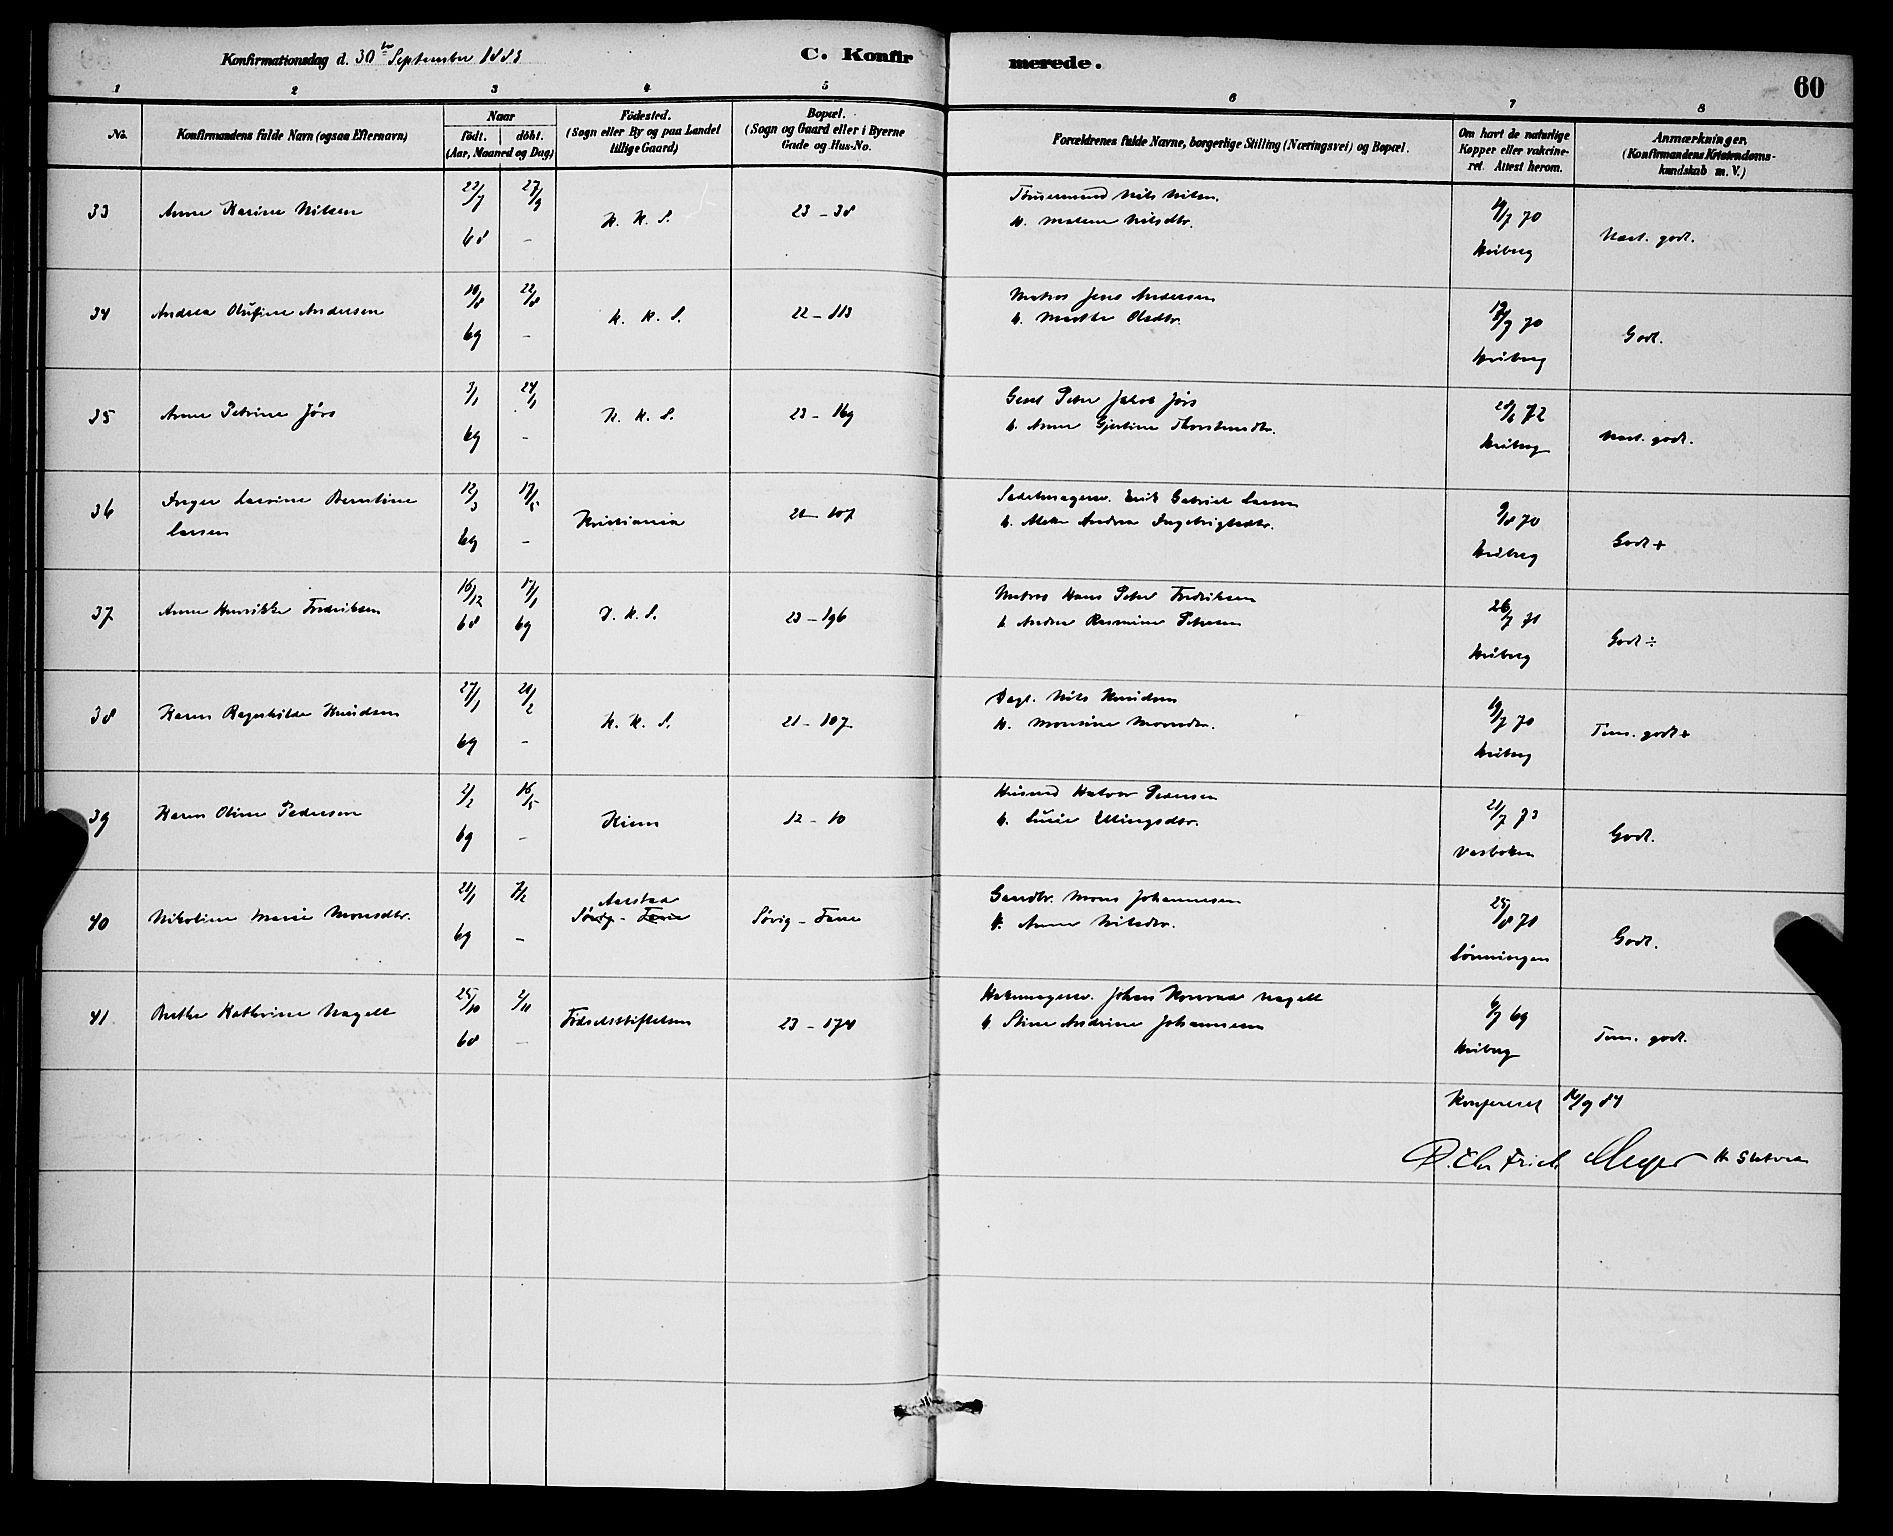 Konfirmationsdag d. 30te September 1883
C. Konfirmerede.
60
1 2 3 4 5 6 7 8
No.
Konfirmandens fulde Navn (ogsaa Efternavn)
Naar
født. døbt.
(Aar, Maaned og Dag)
Fødested.
(Sogn eller By og paa Landet
tillige Gaard)
Bopæl.
(Sogn og Gaard eller i Byerne
Gade og Hus-No.
Forældrenes fulde Navne, borgerlige Stilling (Næringsvei) og Bopæl.
Om havt de naturlige
Kopper eller vakcine-
ret. Attest herom.
Anmærkninger.
(Konfirmandens Kristendoms-
kundskab m. V.)
33 Anne Karine Nilsen 22/7 68 27/9 – K. K. S. 23 – 38
Nils Nilsen
h. Malene Nilsdtr.
4/7 70
Heiberg
Næst. godt.
34 Andrea Olufine Andersen 10/8 69 22/8 – K. K. S. 22 – 113
Matros Jens Andersen
h. Marthe Olsdtr.
70
Heiberg
Godt.
35 Anne Petrine Jørs 3/1 69 24/1 – K. K. S. 23 – 169
Peter Jakob Jørs
h. Anne Gjertine Thorstensdtr.
72
Heiberg
Næst. godt.
36 Inger Lavine Berntine
Larsen
12/3 69 17/5 – Kristiania 21 – 107
Erik Gabriel Larsen
h. Andrea Ingebrigtsdtr.
9/8 70
Heiberg
Godt +
37 Anne Henrikke Fredriksen 16/12 68 17/1 69 D. K. S. 23 – 196
Matros Hans Peter Fredriksen
h. Andrea Rasmine Petersen
26/7 71
Heiberg
Godt ÷
38 Karen Ragnhilde Knudsen 27/1 69 21/2 – K. K. S. 21 – 107
Dagl. Nils Knudsen
h. Monsine Monsdtr.
70
Heiberg
Tem. godt +
39 Karen Oline Pedersen 2/2 69 16/5 – Kinn 12 – 10
Husmd Halvor Pedersen
h. Lucie Ellingsdtr.
21/7 73
Vasbotten
Godt.
40 Nikoline Marie Monsdtr. 21/1 69 7/2 – Aarstad
Søvig – Fane
Søvig – Fane
Gaardbr. Mons Johannesen
h. Anne Nilsdtr.
25/8 70
Lønningen
Godt.
41 Berthe Kathrine Nagell 25/10 68 2/11 – Fødselsstiftelsen 23 – 174
Johan Konrad Nagell
h. Stine Andrine Johannesen
6/7 69
Heiberg
Tem. godt.
Konfereret 16/9 84
Meyer